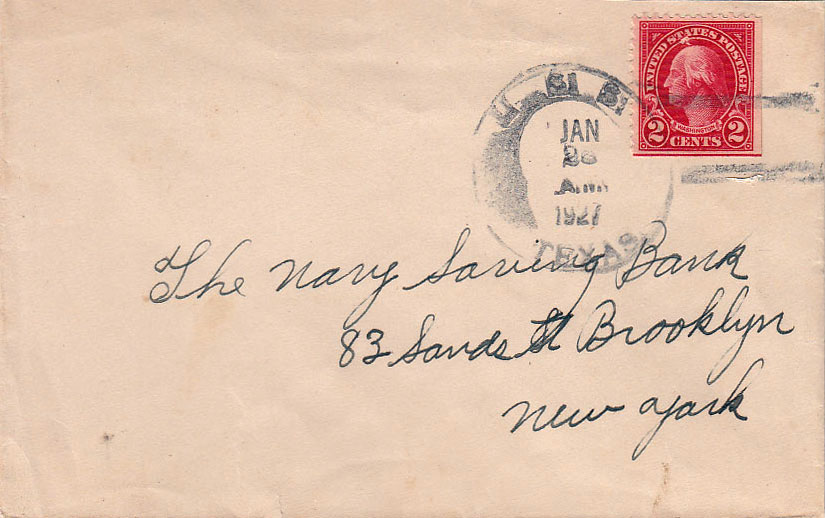 UNITED STATES POSTAGE
WASHINGTON
2 CENTS 2
U. S. S.
JAN
26
A.M.
1927
TEXAS
The Navy Saving Bank
83 Sands St Brooklyn
New York